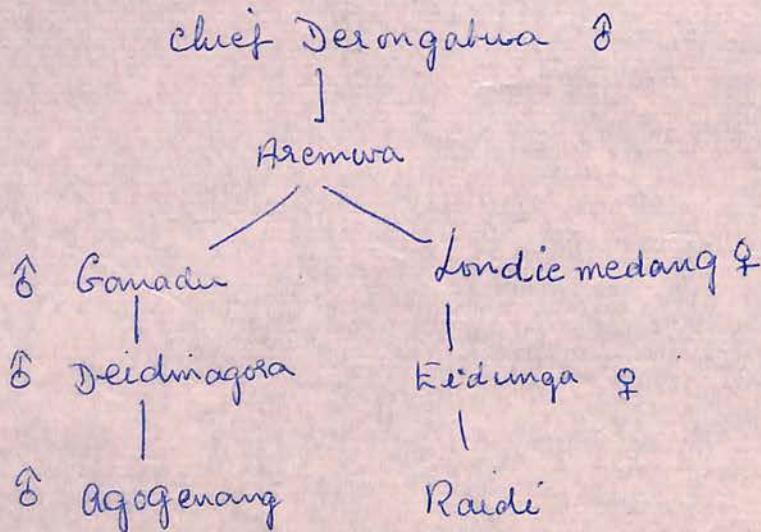 chief Derongabwa ♂
Aremwa
♂ Ganadu Londie medang ♀
♂ Deidinagora Eidunga ♀
♂ Agogenang Raidi